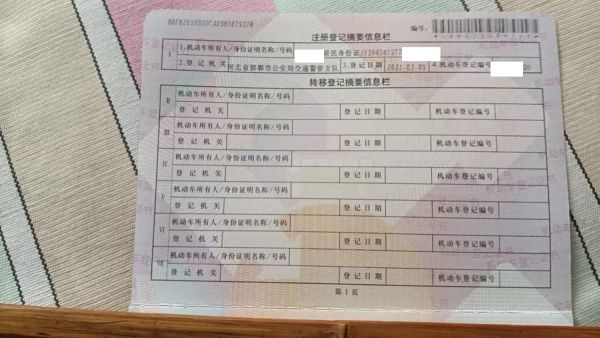 注册登记摘要信息栏
编号:
I
1.机动车所有人/身份证明名称/号码 居民身份证/
2.登记机关 河北省邯郸市公安局交通警察支队 3.登记日期 2021-03-05 4.机动车登记编号
转移登记摘要信息栏
II 机动车所有人/身份证明名称/号码
登记机关 登记日期 机动车登记编号
III 机动车所有人/身份证明名称/号码
登记机关 登记日期 机动车登记编号
IV 机动车所有人/身份证明名称/号码
登记机关 登记日期 机动车登记编号
V 机动车所有人/身份证明名称/号码
登记机关 登记日期 机动车登记编号
VI 机动车所有人/身份证明名称/号码
登记机关 登记日期 机动车登记编号
VII 机动车所有人/身份证明名称/号码
登记机关 登记日期 机动车登记编号
第1页